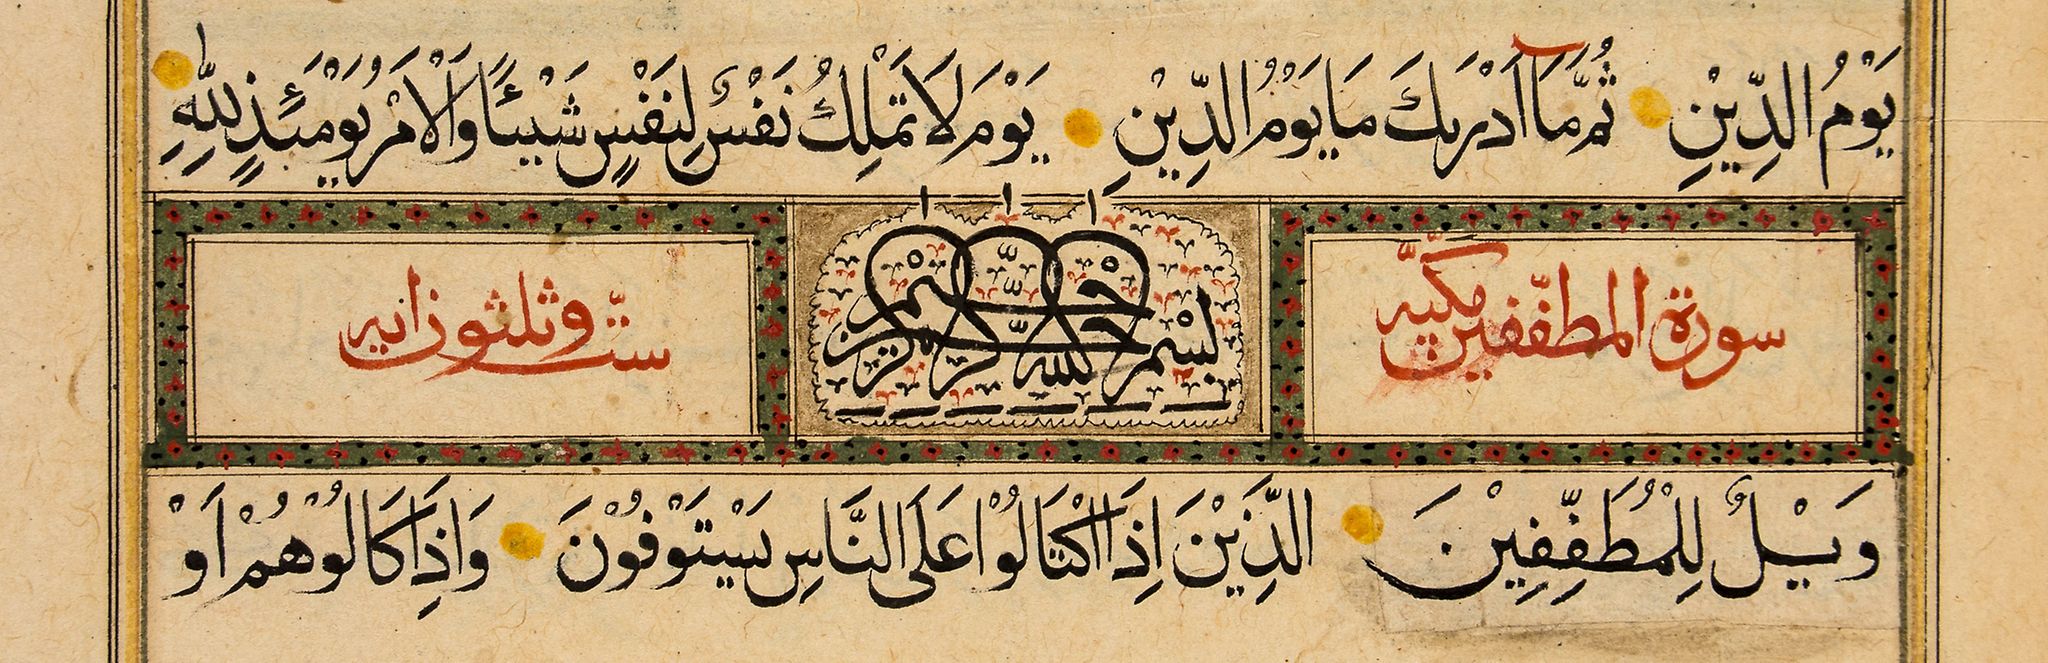 يَوْمُ الدِّيْنِ ثُمَّ مَآ اَدْرٰيكَ مَا يَوْمُ الدِّيْنِ يَوْمَ لَا تَمْلِكُ نَفْسٌ لِنَفْسٍ شَيْئًا وَالْاَمْرُ يَوْمَئِذٍ لِلّٰهِ
سورة المطفّفين مكّيّه
بِسْمِ اللّٰهِ الرَّحْمٰنِ الرَّحِيْمِ
ستّ وثلثون اٰيه
وَيْلٌ لِلْمُطَفِّفِيْنَ الَّذِيْنَ اِذَا اكْتَالُوْا عَلَى النَّاسِ يَسْتَوْفُوْنَ وَاِذَا كَالُوْهُمْ اَوْ